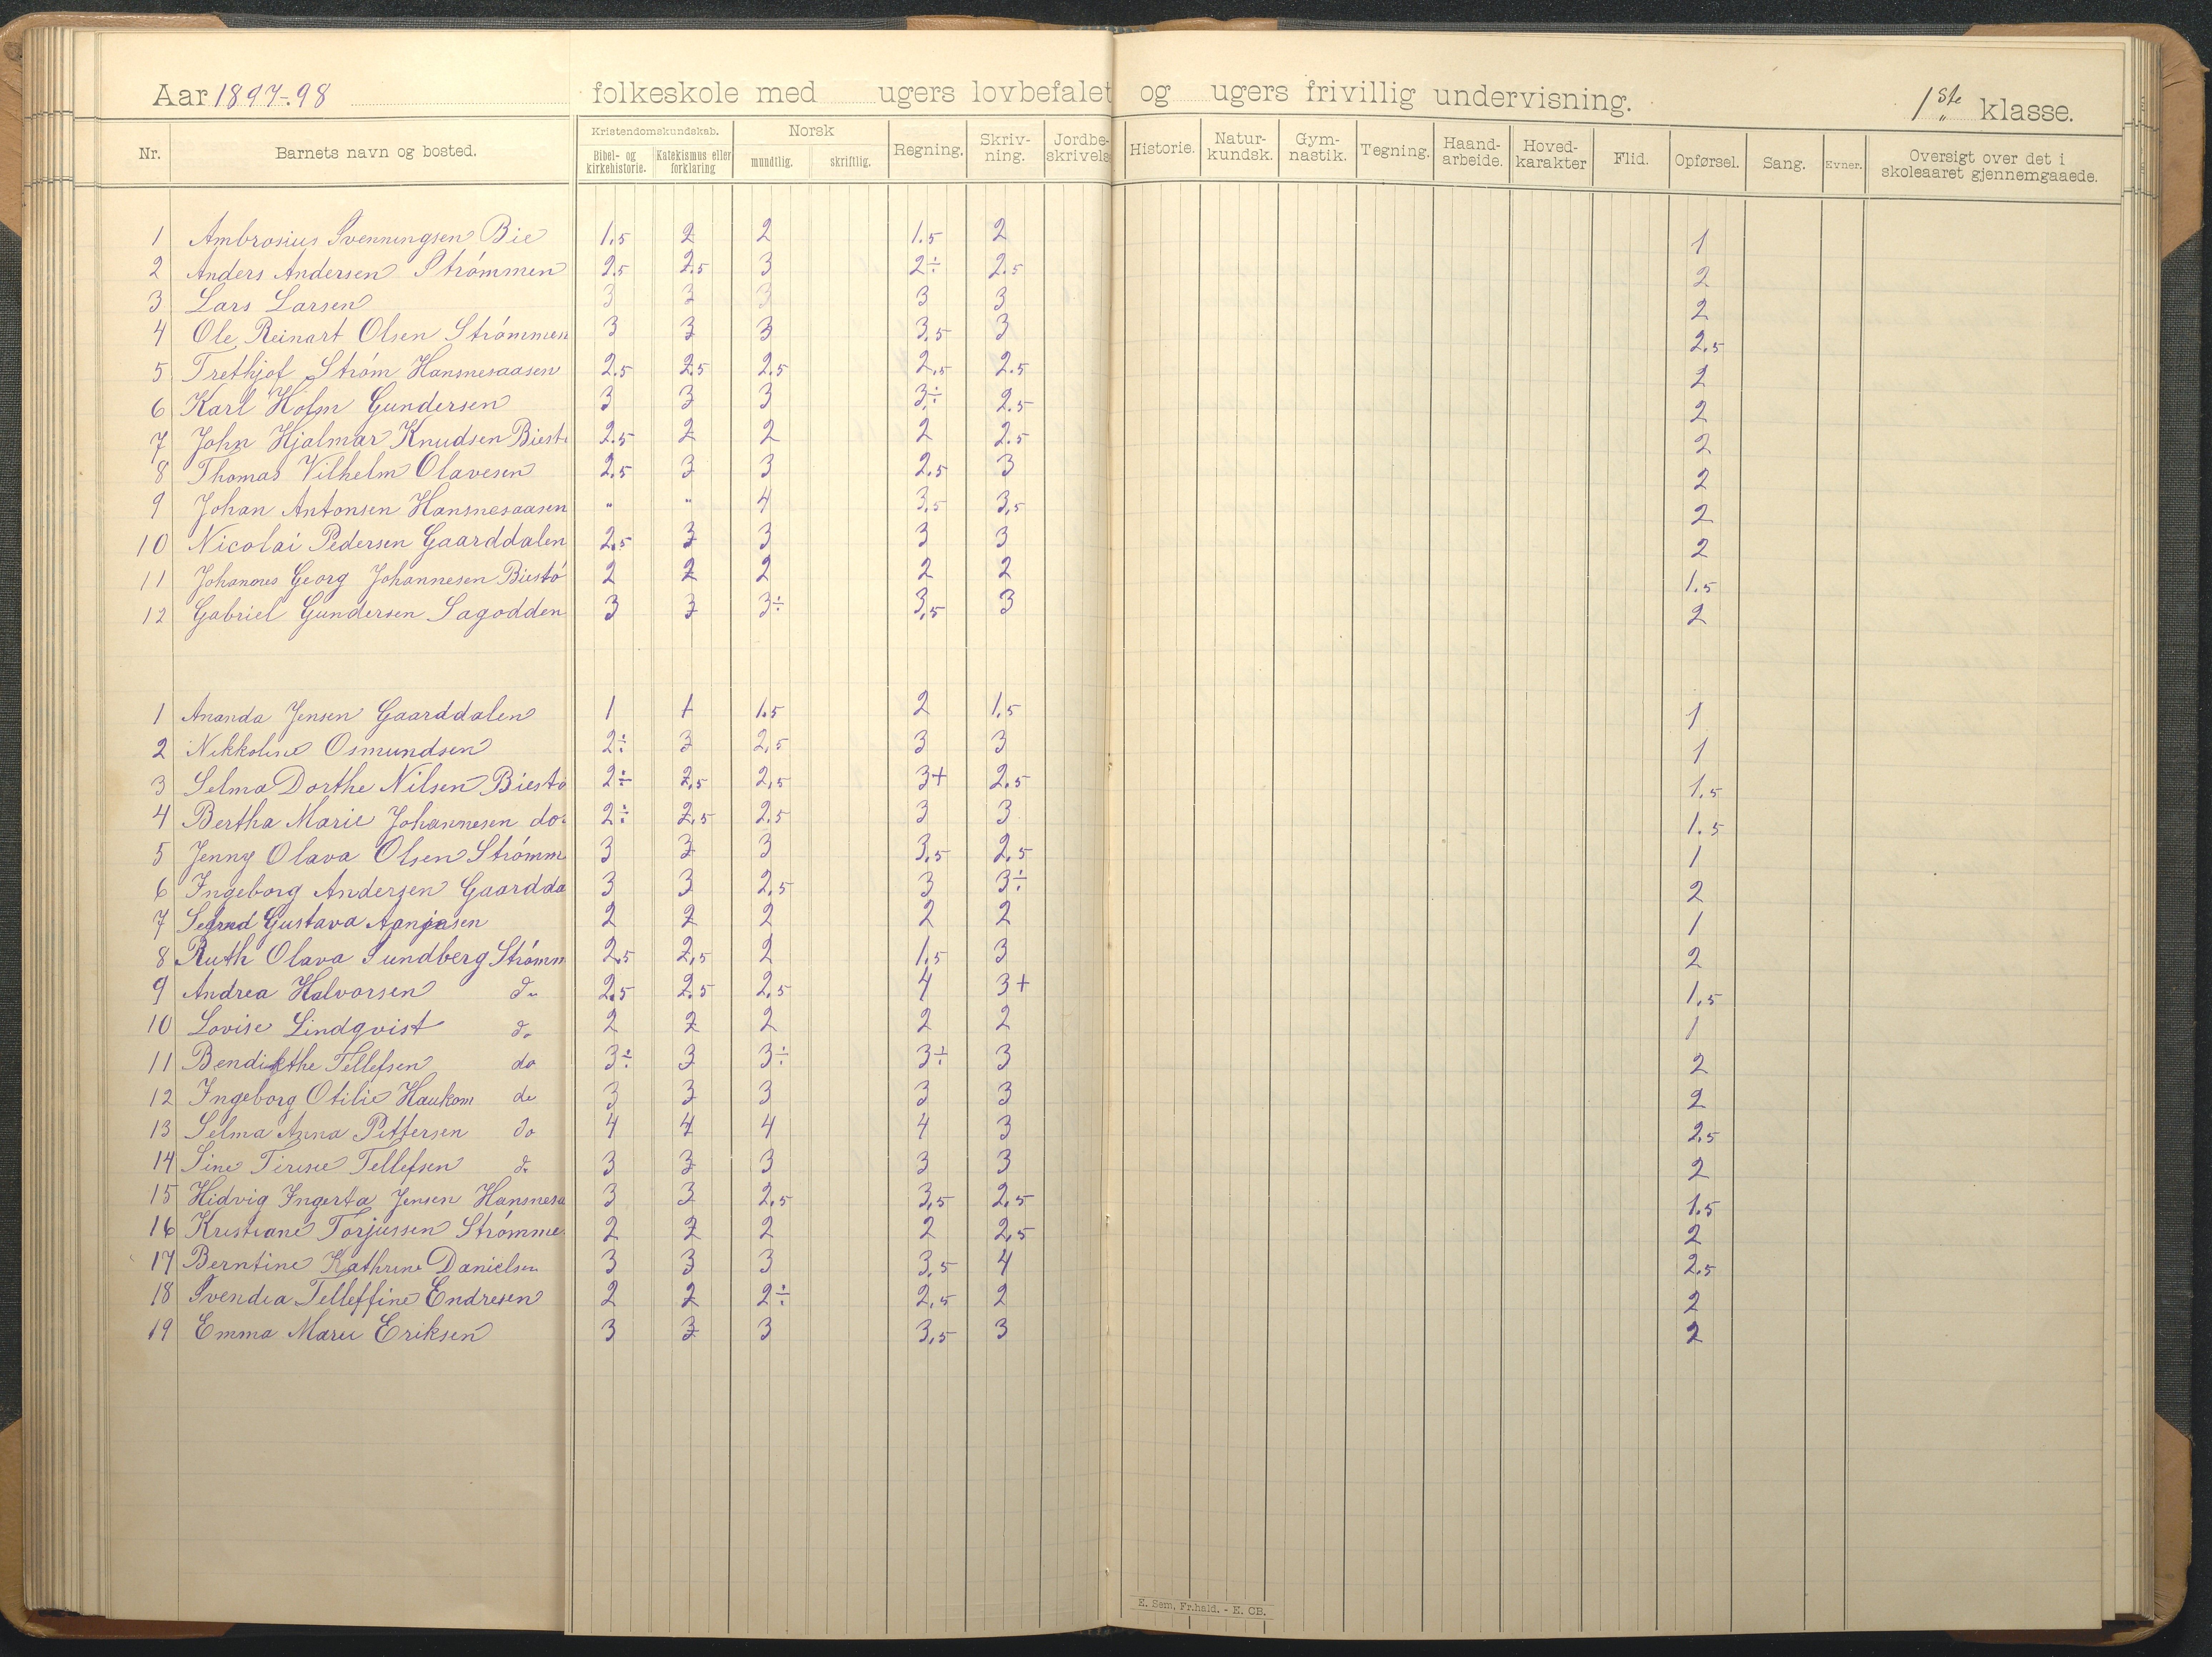 Aar 1897-98 folkeskole med ugers lovbefalet og ugers frivillig undervisning. 1ste klasse.
Nr. Barnets navn og bosted. Kristendomskundskab. Bibel- og kirkehistorie. Katekismus eller forklaring Norsk mundtlig. skriftlig. Regning. Skriv-ning. Jordbe-skrivels Historie. Natur-kundsk. Gym-nastik. Tegning. Haand-arbeide. Hoved-karakter Flid. Opførsel. Sang. Evner. Oversigt over det i skoleaaret gjennemgaaede.
1 Ambrosius Svenningsen Bie 1.5 2 2 1.5 2 1
2 Anders Andersen Strømmen 2.5 2.5 3 2÷ 2.5 2
3 Lars Larsen 3 3 3 3 3 2
4 Ole Reinart Olsen Strømmen 3 3 3 3,5 3 2.5
5 Trethjof Strøm Hansnesaasen 2.5 2.5 2.5 2,5 2.5 2
6 Karl Holm Gundersen 3 3 3 3÷ 2.5 2
7 John Hjalmar Knudsen Biest 2.5 2 2 2 2.5 2
8 Thomas Vilhelm Olavesen 2.5 3 3 2.5 3 2
9 Johan Antonsen Hansnesaasen " " 4 3,5 3,5 2
10 Nicolai Pedersen Gaarddalen 2.5 3 3 3 3 2
11 Johannes Georg Johannesen Biestø 2 2 2 2 2 1.5
12 Gabriel Gundersen Sagodden 3 3 3÷ 3,5 3 2
1 Ananda Jensen Gaarddalen 1 1 1.5 2 1.5 1
2 Nikkoline Osmundsen 2÷ 3 2,5 3 3 1
3 Selma Dorthe Nilsen Biestø 2÷ 2,5 2,5 3+ 2.5 1.5
4 Bertha Marie Johannesen do. 2÷ 2,5 2.5 3 3 1.5
5 Jenny Olava Olsen Strømm 3 3 3 3,5 2,5 1
6 Ingeborg Andersen Gaardda 3 3 2,5 3 3÷ 2
7 Gustava 2 2 2 2 2 1
8 Ruth Olava Sundberg Strømm 2,5 2,5 2 1,5 3 2
9 Andrea Halvorsen do 2,5 2.5 2,5 4 3+ 1,5
10 Lovise Lindqvist do 2 2 2 2 2 1
11 Bendikthe Tellefsen do 3÷ 3 3÷ 3÷ 3 2
12 Ingeborg Otilie Haukom do 3 3 3 3 3 2
13 Selma Anna Pettersen do 4 4 4 4 3 2,5
14 Sine Tirese Tellefsen do 3 3 3 3 3 2
15 Hidvig Ingerta Jensen Hansnesa 3 3 2,5 3,5 2,5 1.5
16 Kristiane Torjussen Strømme 2 2 2 2 2,5 2
17 Berntine Kathrine Danielsen 3 3 3 3,5 4 2.5
18 Svendia Telleffine Endresen 2 2 2÷ 2,5 2 2
19 Emma Marie Eriksen 3 3 3 3,5 3 2
E. Sem, Fr.hald. - E. OB.